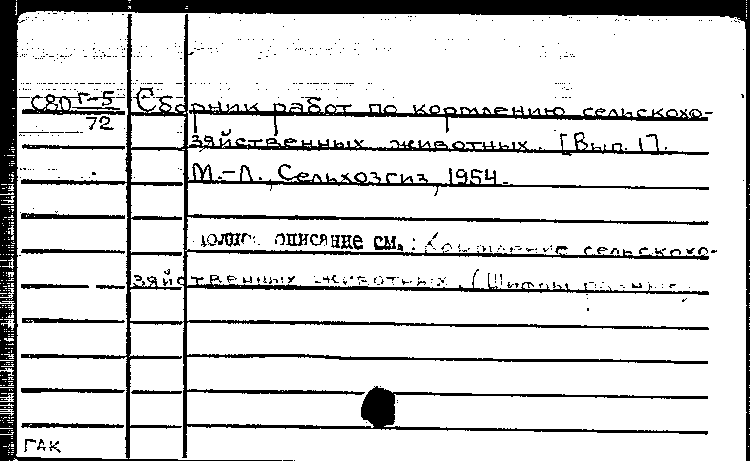 С80 Г-5/72 Сборник работ по кормлению сельскохо-
зяйственных животных. [Вып. 1].
М.-Л., Сельхозгиз, 1954.
описание см.: Кормление сельскохо-
зяйственных животных. (Шифры разные)
ГАК